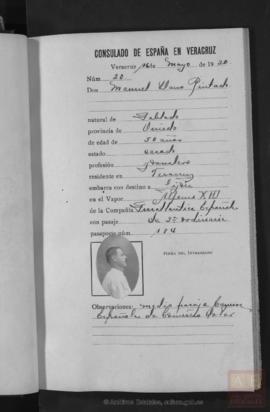 CONSULADO DE ESPAÑA EN VERACRUZ
Veracruz 16 de Mayo de 1920
Núm 20
Don Manuel Llano Pintado
natural de
provincia de Oviedo
de edad de 50 años
estado casado
profesión
residente en Veracruz
embarca con destino a Gijón
en el Vapor Alfonso XIII
de la Compañía Trasatlántica Española
con pasaje de 3ª ordinaria
pasaporte núm 184
FIRMA DEL INTERESADO
Observaciones: medio pasaje
Españoles de
© Archivos Estatales,